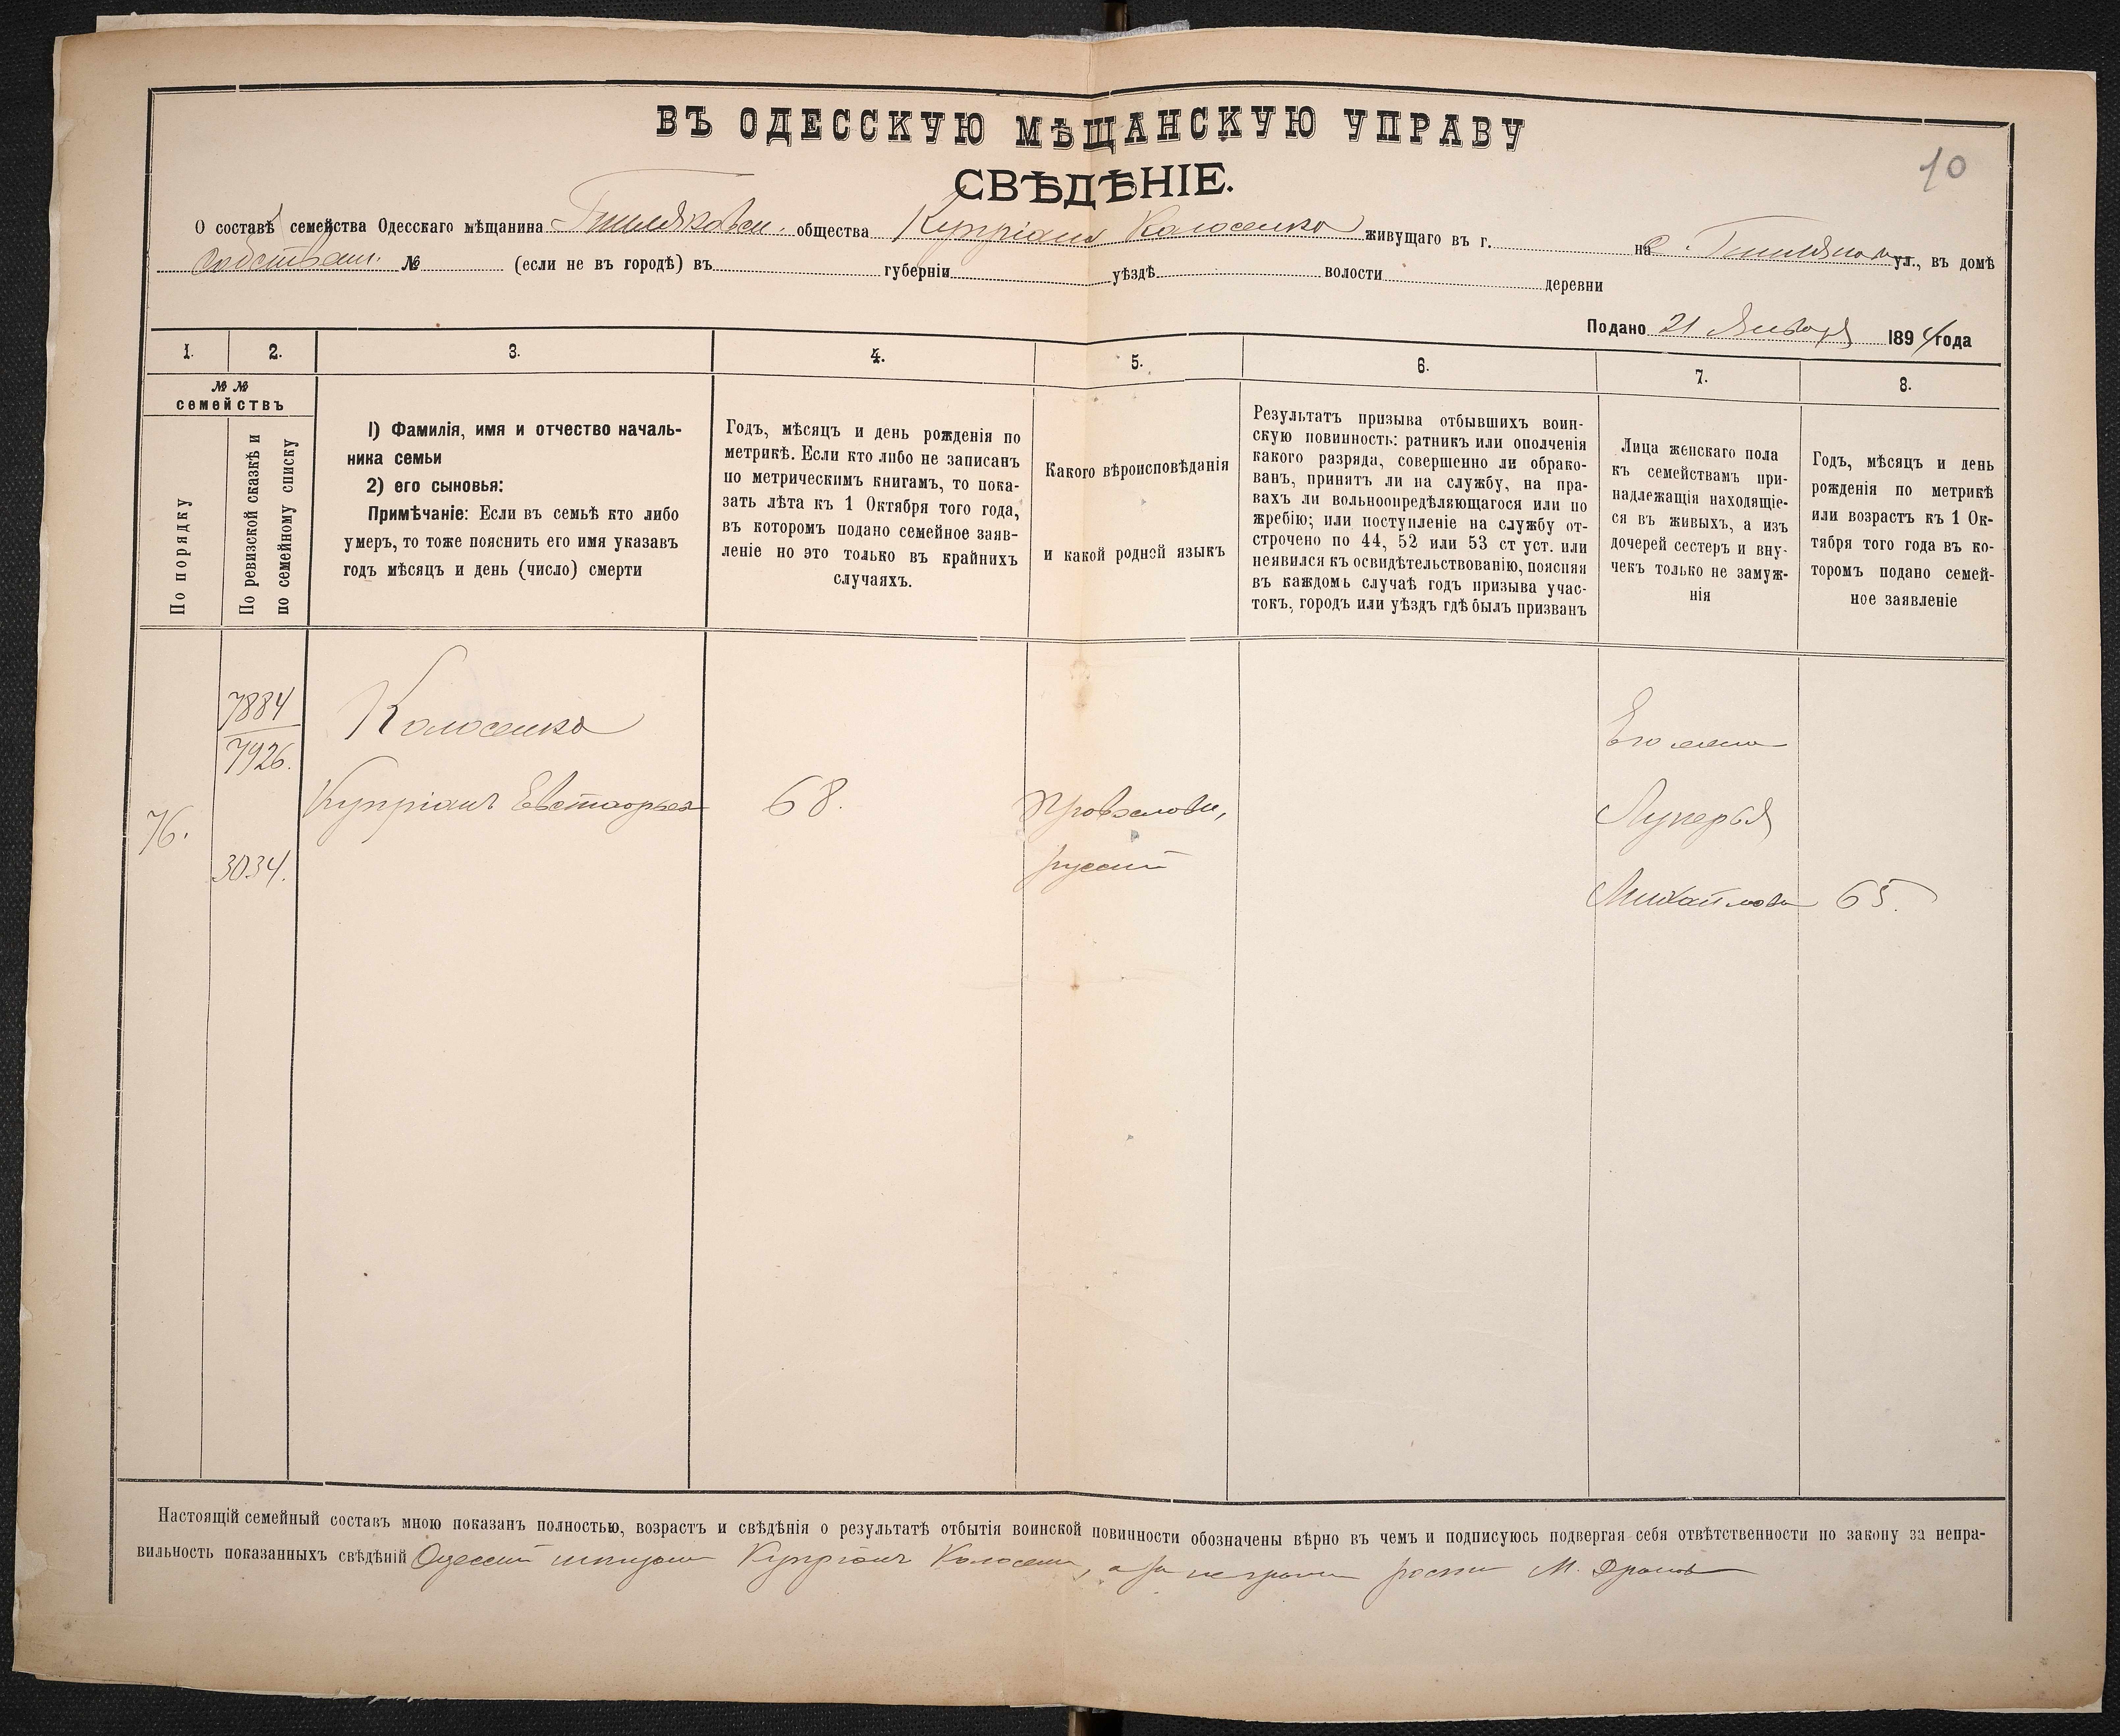 ВЪ ОДЕССКУЮ МѢЩАНСКУЮ УПРАВУ
10
СВѢДѢНІЕ.
О составѣ семейства Одесскаго мѣщанина общества Купріана Колосенко живущаго въ г. на ул., въ домѣ
собствен. № (если не въ городѣ) въ губерніи уѣздѣ волости деревни
Подано 21 Января 1894 года
1. 2. 3. 4. 5. 6. 7. 8.
№ №
семействъ
По порядку
По ревизской сказкѣ и
по семейному списку
1) Фамилія, имя и отчество началь-
ника семьи
2) его сыновья:
Примѣчаніе: Если въ семьѣ кто либо
умеръ, то тоже пояснить его имя указавъ
годъ мѣсяцъ и день (число) смерти
Годъ, мѣсяцъ и день рожденія по
метрикѣ. Если кто либо не записанъ
по метрическимъ книгамъ, то пока-
зать лѣта къ 1 Октября того года,
въ которомъ подано семейное заяв-
леніе но это только въ крайнихъ
случаяхъ.
Какого вѣроисповѣданія
и какой родной языкъ
Результатъ призыва отбывшихъ воин-
скую повинность: ратникъ или ополченія
какого разряда, совершенно ли обрако-
ванъ, принятъ ли на службу, на пра-
вахъ ли вольноопредѣляющагося или по
жребію; или поступленіе на службу от-
строчено по 44, 52 или 53 ст уст. или
неявился къ освидѣтельствованію, поясняя
въ каждомъ случаѣ годъ призыва учас-
токъ, городъ или уѣздъ гдѣ былъ призванъ
Лица женскаго пола
къ семействамъ при-
надлежащія находящіе-
ся въ живыхъ, а изъ
дочерей сестеръ и вну-
чекъ только не замуж-
нія
Годъ, мѣсяцъ и день
рожденія по метрикѣ
или возрастъ къ 1 Ок-
тября того года въ ко-
торомъ подано семей-
ное заявленіе
7884
7926.
Колосенко
Его жена
76.
Купріанъ 68. Православн, Лукерья
3034.
русскій
Михайлова 65.
Настоящій семейный составъ мною показанъ полностью, возрастъ и свѣдѣнія о результатѣ отбытія воинской повинности обозначены вѣрно въ чемъ и подписуюсь подвергая себя отвѣтственности по закону за непра-
вильность показанныхъ свѣдѣній Одесскій мѣщанин Купріанъ Колосенко, а за неграм